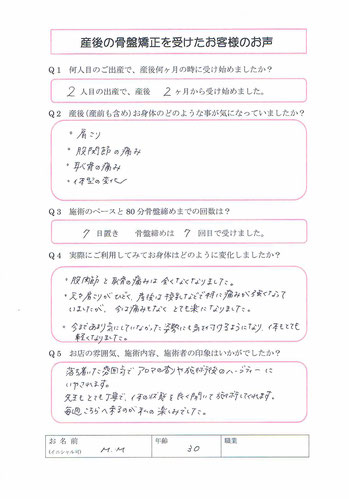 産後の骨盤矯正を受けたお客様のお声
Q1 何人目のご出産で、産後何ヶ月の時に受け始めましたか?
2 人目の出産で、産後 2 ヶ月から受け始めました。
Q2 産後(産前も含め)お身体のどのような事が気になっていましたか?
・肩こり
・股関節の痛み
・恥骨の痛み
・体型の変化
Q3 施術のペースと80分骨盤締めまでの回数は?
7 日置き 骨盤締めは 7 回目で受けました。
Q4 実際にご利用してみてお身体はどのように変化しましたか?
・股関節と恥骨の痛みは全くなくなりました。
・元々肩こりがひどく、産後は授乳などで特に痛みが強くなって
いましたが、今は痛みもなくとても楽になりました。
・今まであまり気にしていなかった姿勢にも気を付けるようになり、体もとても
軽くなりました。
Q5 お店の雰囲気、施術内容、施術者の印象はいかがでしたか?
落ち着いた雰囲気で、アロマの香りや施術後のハーブティーに
いやされます。
先生もとても丁寧で、体の状態を良く聞いて施術してくれます。
毎週こちらへ来るのが私の楽しみでした。
お名前
(イニシャル可)
M.M
年齢
30
職業